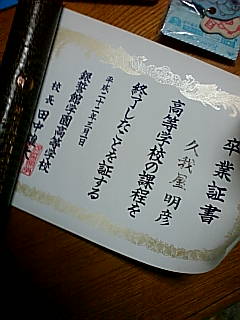 卒業証書
久我屋 明彦
高等学校の課程を
終了したことを証する
平成二十一年三月一日
銀誓館学園高等学校
校長 田中